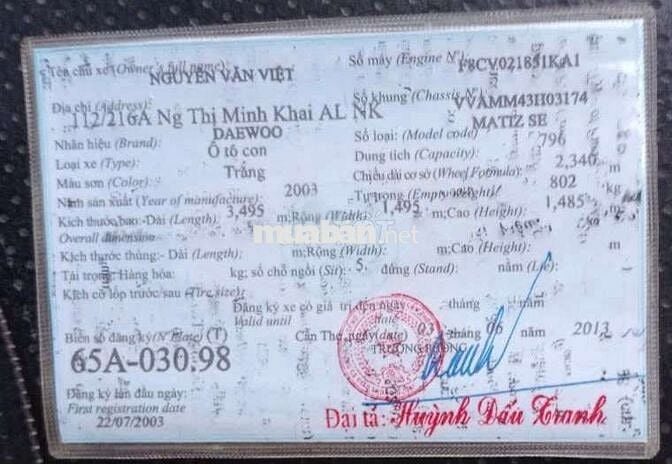 Tên chủ xe (Owner's full name): NGUYỄN VĂN VIỆT
Số máy (Engine Nº): F8CV021851KA1
Địa chỉ (Address): 112/216A Ng Thị Minh Khai AL NK
Số khung (Chassis Nº): VVAMM43H03174
Nhãn hiệu (Brand): DAEWOO
Số loại: (Model code) MATIZ SE
Loại xe (Type): Ô tô con
Dung tích (Capacity): 796
Màu sơn (Color): Trắng
Chiều dài cơ sở (Wheel Formula): 2,340 m
Năm sản xuất (Year of manufacture): 2003
Tự trọng (Empty weight): 802 kg
Kích thước bao: Dài (Length): 3,495 m; Rộng (Width): 1,495 m; Cao (Height): 1,485 m
Overall dimension
Kích thước thùng:- Dài (Length): m;Rộng (Width): m;Cao (Height): m
Tải trọng: Hàng hóa: kg; số chỗ ngồi (Sit): 5 đứng (Stand): nằm (Lie):
Kích cỡ lốp trước/sau (Tire size):
Đăng ký xe có giá trị đến ngày tháng năm
Valid until date
Biển số đăng ký(Nº Plate) (T)
Cần Thơ, ngày(date) 03 tháng 06 năm 2013
TRƯỞNG PHÒNG
65A-030.98
Đăng ký lần đầu ngày:
First registration date
22/07/2003
Đại tá: Huỳnh Đấu Tranh
muaban.net